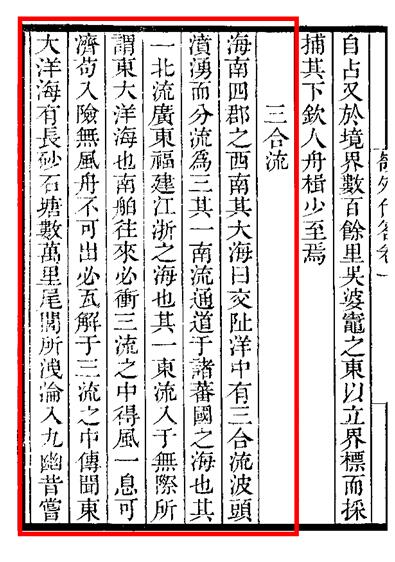 嶺外代答卷一
自占又於境界數百餘里吳婆竈之東以立界標而採
捕其下欽人舟楫少至焉
三合流
海南四郡之西南其大海曰交阯洋中有三合流波頭
濆湧而分流爲三其一南流通道于諸蕃國之海也其
一北流廣東福建江浙之海也其一東流入于無際所
謂東大洋海也南舶往來必衝三流之中得風一息可
濟苟入險無風舟不可出必瓦解于三流之中傳聞東
大洋海有長砂石塘數萬里尾閭所洩淪入九幽昔嘗